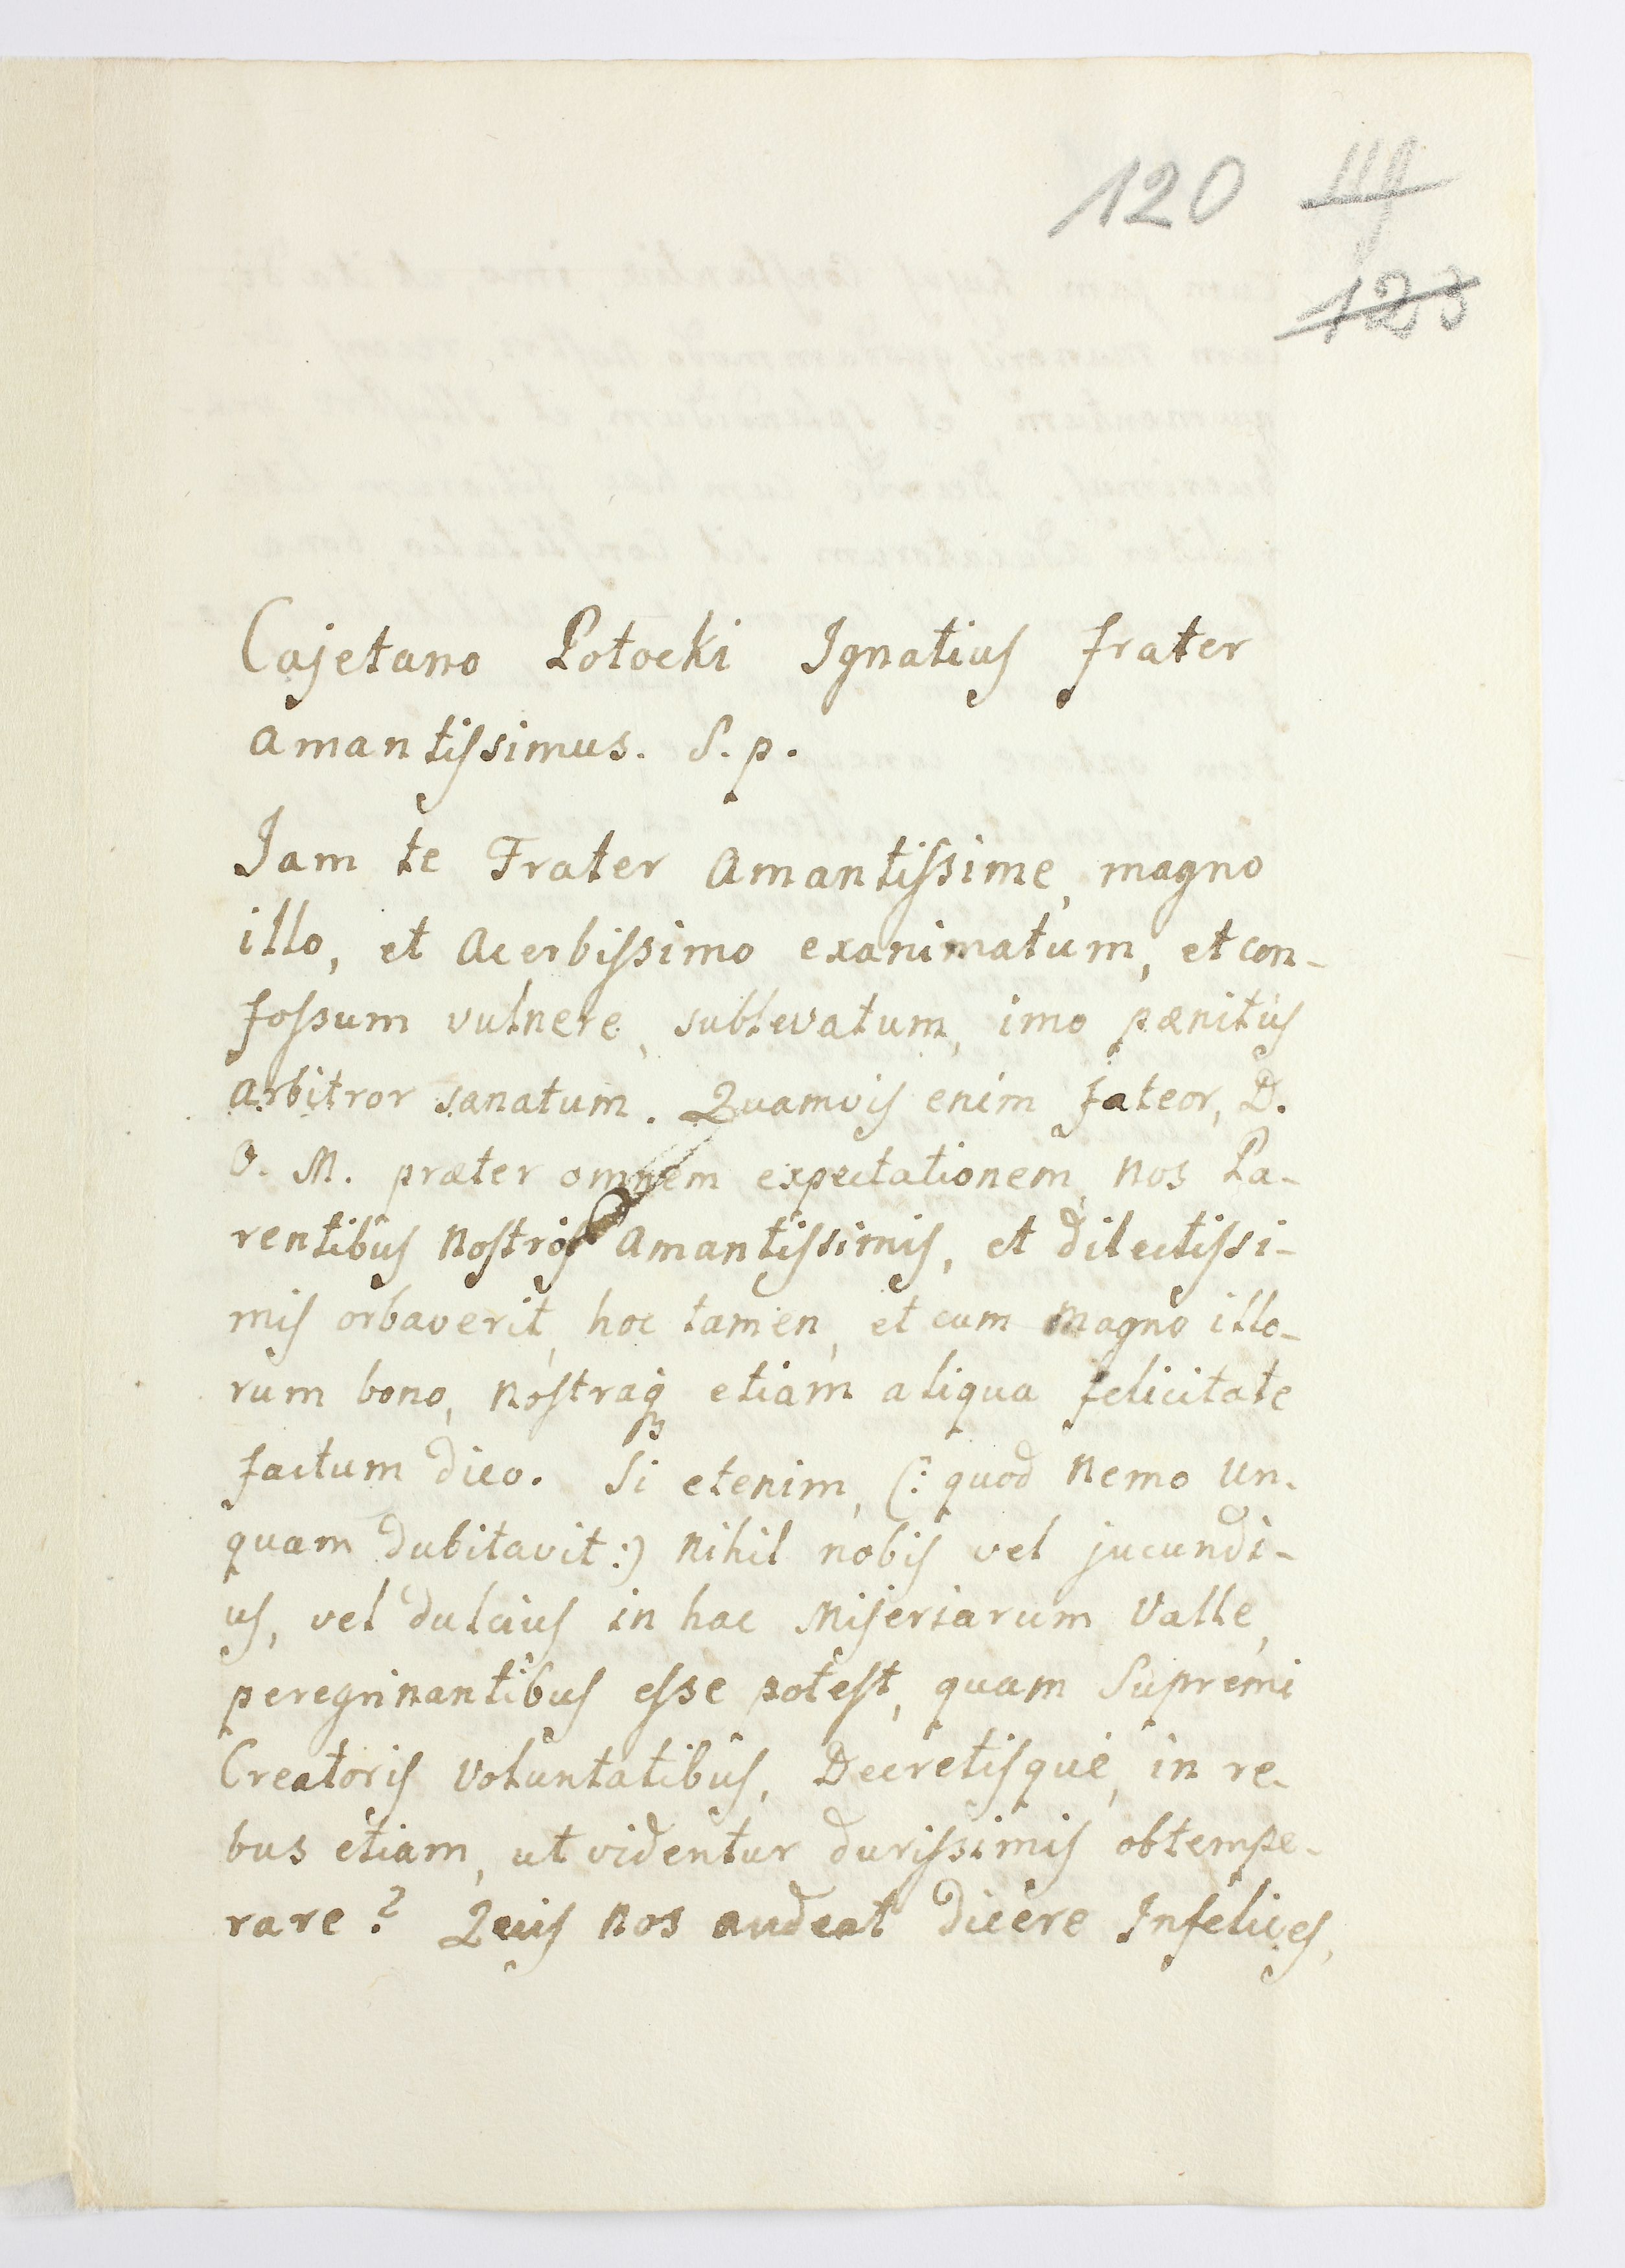 120 119
123
Cajetano Potocki Ignatius frater
amantissimus. S. p.
Jam te Frater Amantissime, magno
illo, et Acerbissimo exanimatum, et con-
fossum vulnere, sublevatum, imo pænitus
Arbitror sanatum. Quamvis enim fateor, D.
O. M. præter omnem expectationem, nos Pa-
rentibus Nostris Amantissimis, et dilectissi-
mis orbaverit, hoc tamen, et cum Magno illo-
rum bono, Nostraq3 etiam aliqua felicitate
factum dico. Si etenim, (: quod Nemo un-
quam dubitavit :) Nihil nobis vel jucundi-
us, vel dulcius in hac Miseriarum Valle,
peregrinantibus esse potest, quam Supremi
Creatoris Voluntatibus, Decretisque, in re-
bus etiam, ut videntur durissimis obtempe-
rare? Quis nos audeat dicere Infelices,